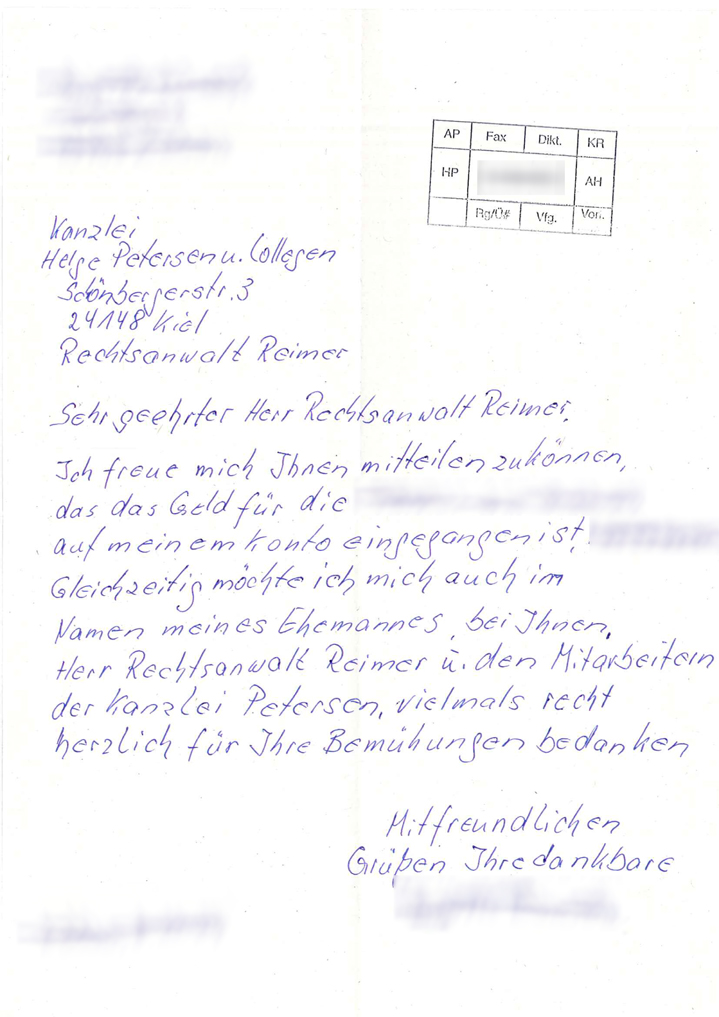 AP Fax Dikt. KR
HP AH
Rg/Ü# Vfg. Von.
Kanzlei
Helge Petersen u. Collegen
Schönbergerstr. 3
24148 Kiel
Rechtsanwalt Reimer
Sehr geehrter Herr Rechtsanwalt Reimer,
Ich freue mich Ihnen mitteilen zukönnen,
das das Geld für die
auf meinem Konto eingegangen ist.
Gleichzeitig möchte ich mich auch im
Namen meines Ehemannes, bei Ihnen,
Herr Rechtsanwalt Reimer u. den Mitarbeitern
der Kanzlei Petersen, vielmals recht
herzlich für Ihre Bemühungen bedanken
Mit freundlichen
Grüßen Ihre dankbare